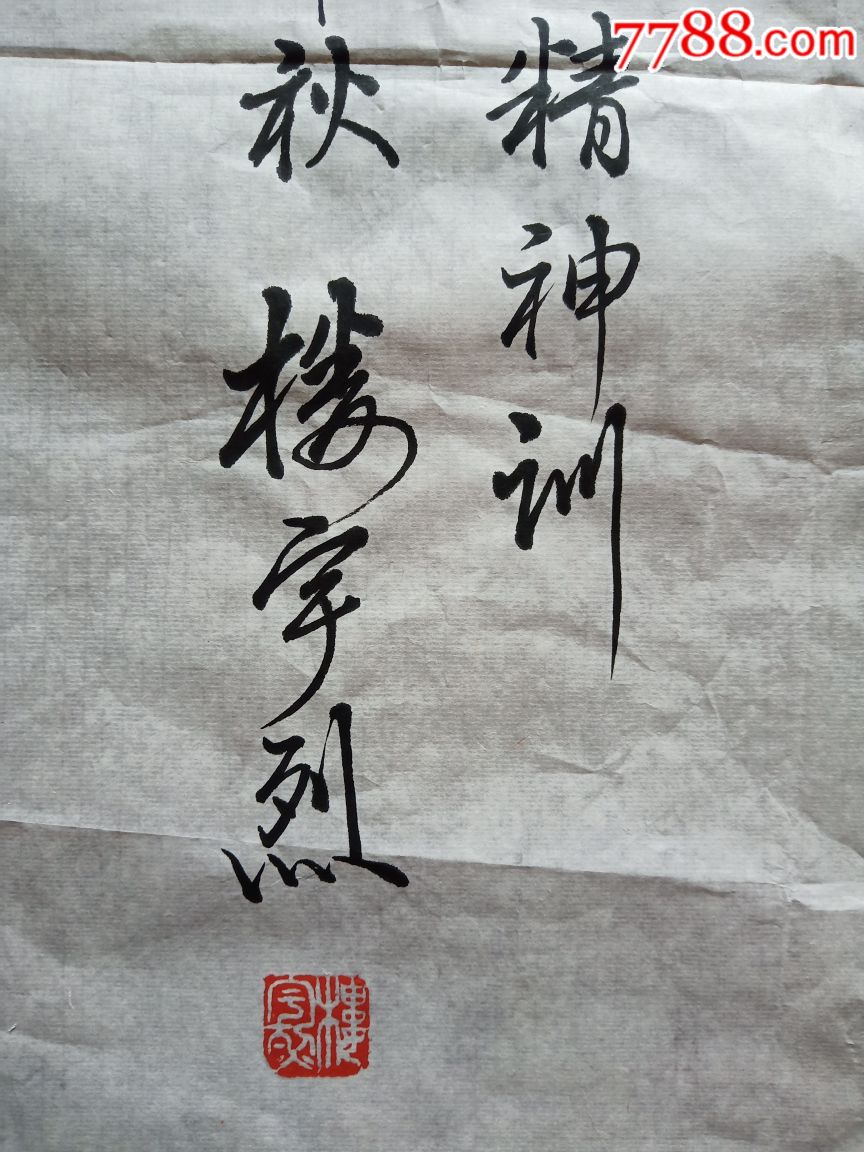 7788.com
精神训
秋 楼宇烈
樓宇烈